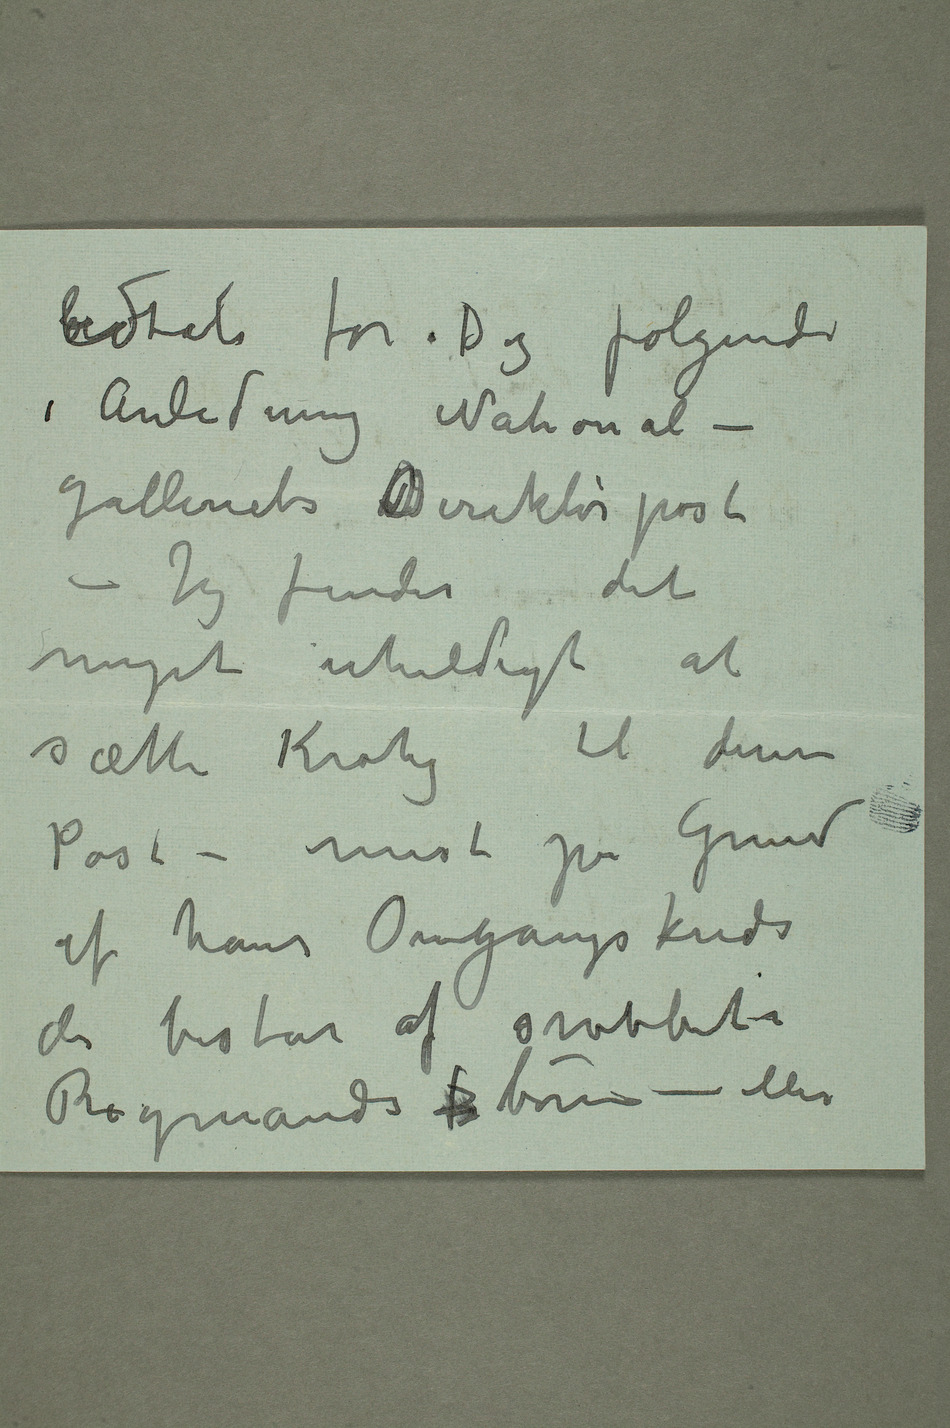 betale for Dig følgende
i Anledning National–
galleriets Direktørpost
– Jeg finder det
meget uheldigt at
sætte Krohg til denne
Post – mest på Grund
af hans Omgangskreds
der bestar af snobbete
Rigmands børn — eller